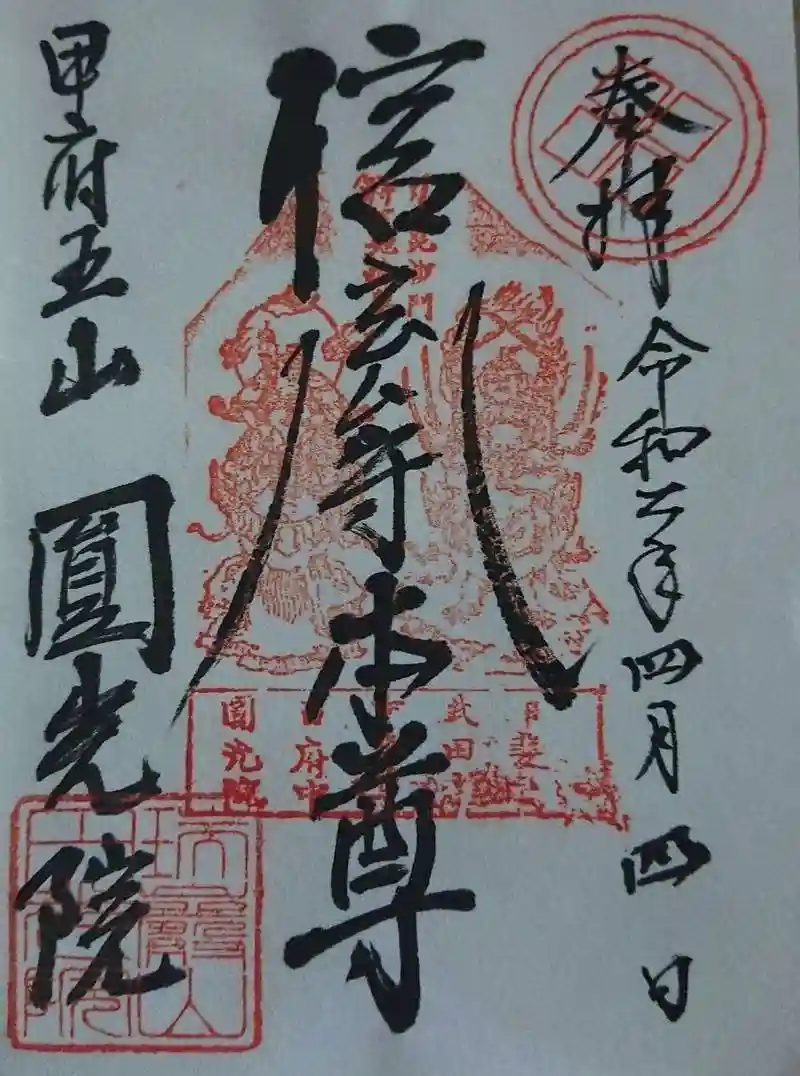 奉拝
令和六年四月四日
信玄公守本尊
毘沙門
甲斐
武田
府中
圓光院
甲府五山 圓光院